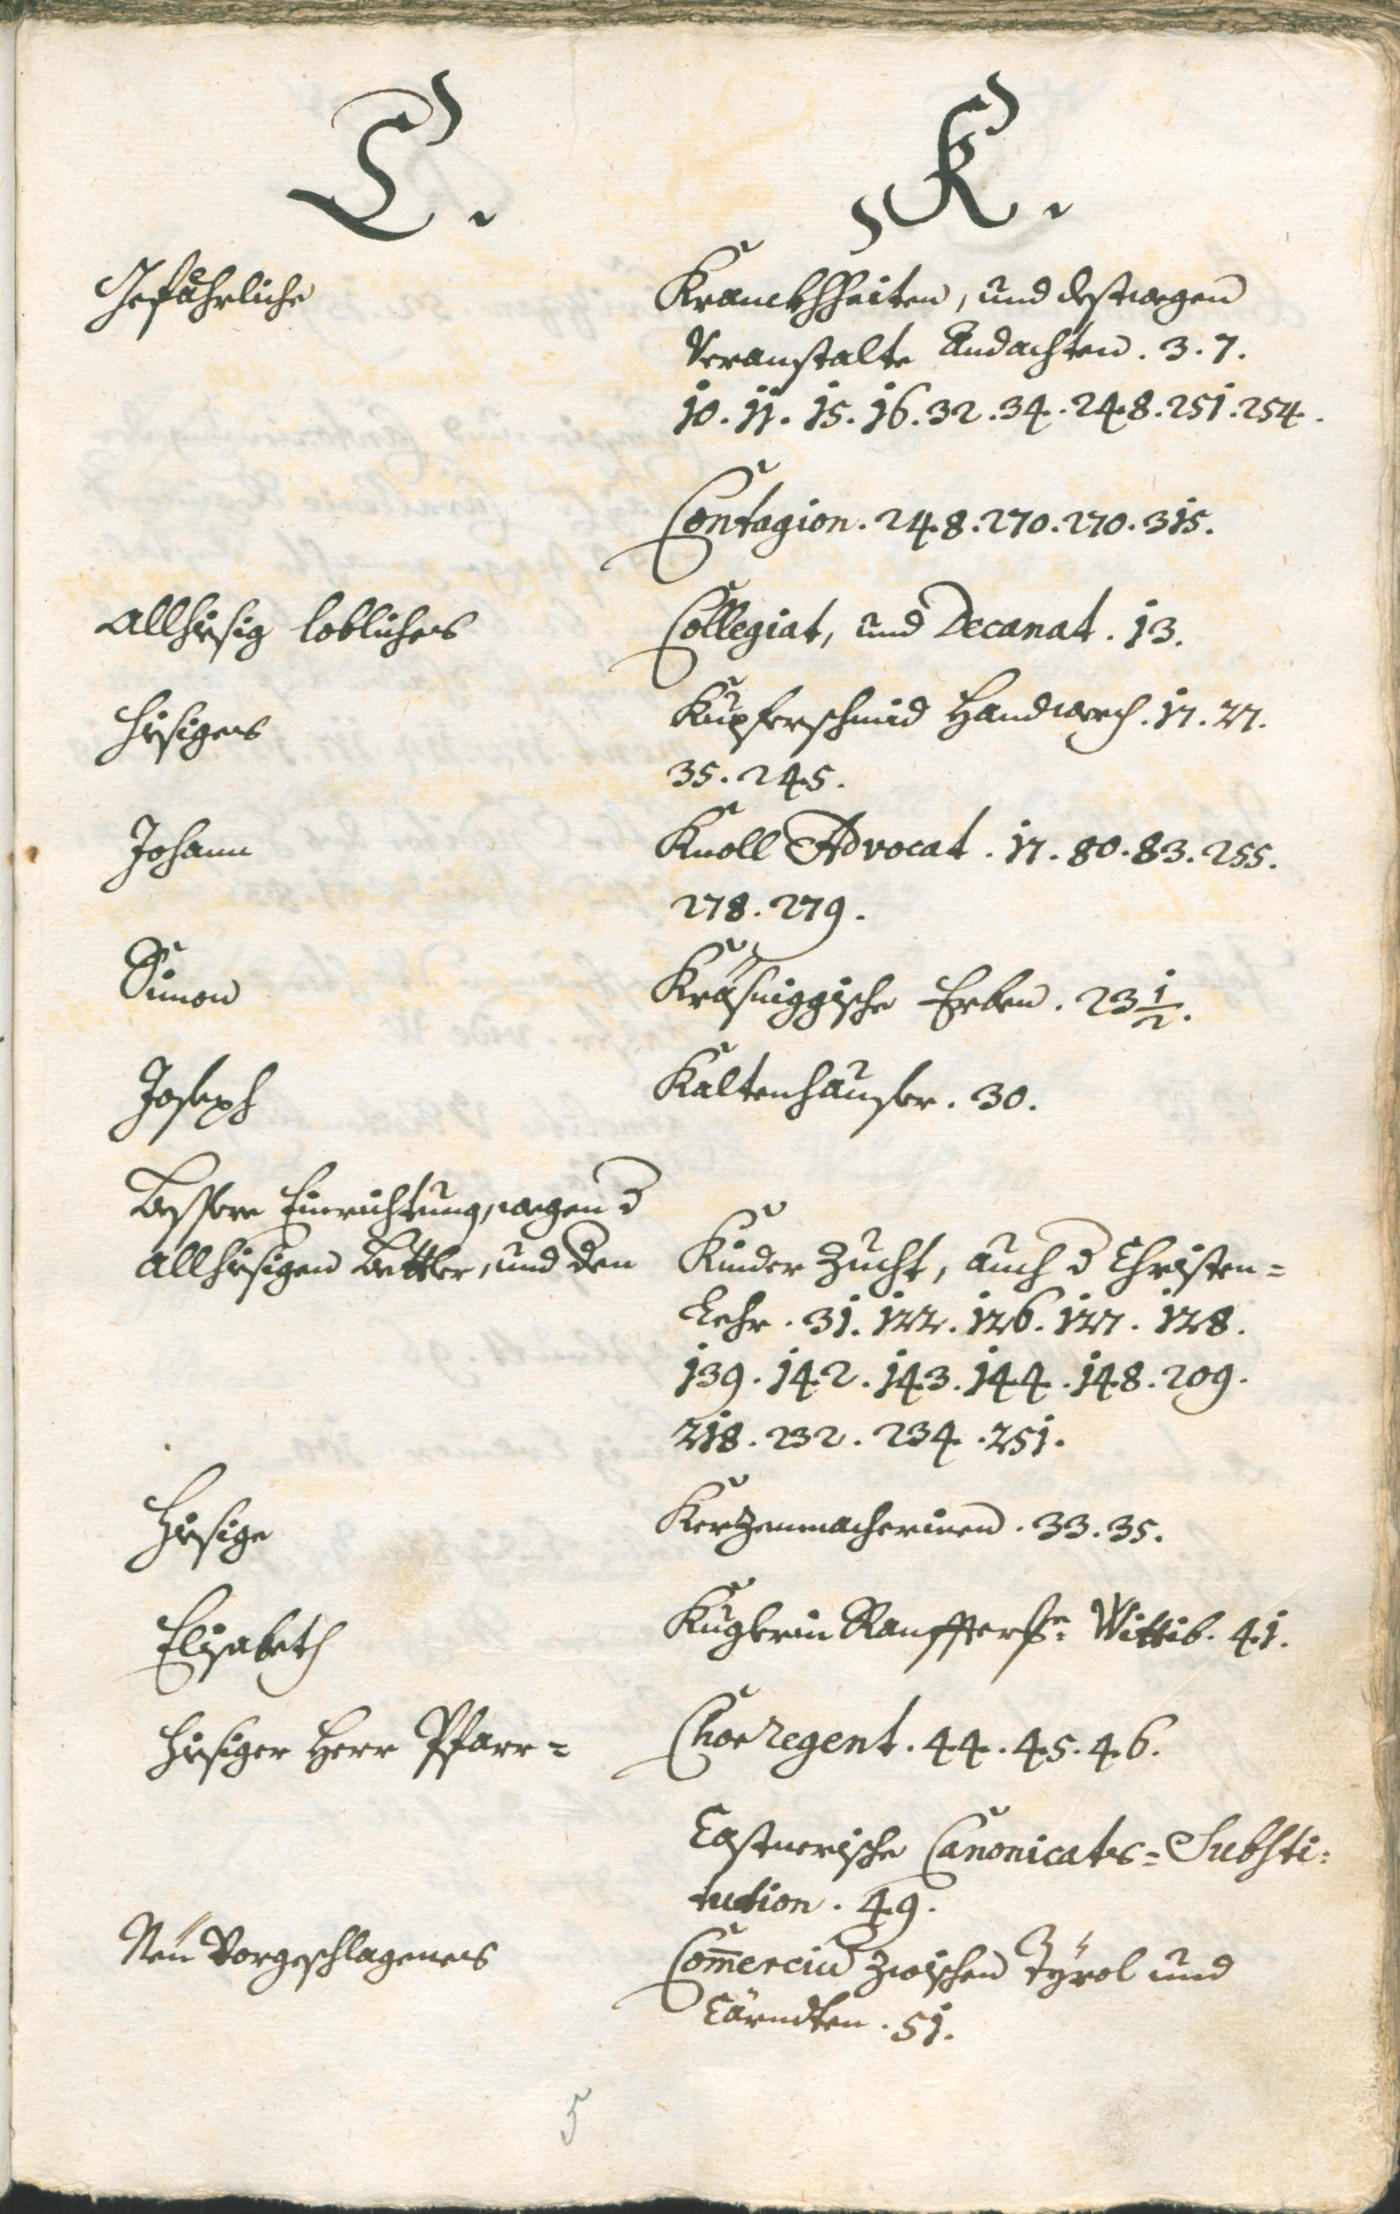 C. K.
Gefährliche Kranckhheiten, und destwegen
Veranstalte Andachten. 3. 7.
10. 11. 15. 16. 32. 34. 248. 251. 254.
Contagion. 248. 270. 270. 315.
Allhiesig lobliches Collegiat, und Decanat. 13.
Hiesiges Kupferschmid Handwerch. 17. 27.
35. 245.
Johann Knoll Advocat. 17. 80. 83. 255.
278. 279.
Simon Kräsniggische Erben. 23 1/2.
Joseph Kaltenhauser. 30.
Bessere Einrichtung, wegen d
allhiesigen Bettler, und den Kinder Zucht, auch d Christen=
Lehr. 31. 122. 126. 127. 128.
139. 142. 143. 144. 148. 209.
218. 232. 234. 251.
Hiesige Kerzenmacherinen. 33. 35.
Elisabeth Kuglerin Wittib. 41.
Hiesiger Herr Pfarr= Chor regent. 44. 45. 46.
Castnerische Canonicats=Substi=
tution. 49.
Neü Vorgeschlagenes Com̄erciu zwischen Tÿrol und
Cärndten. 51.
5